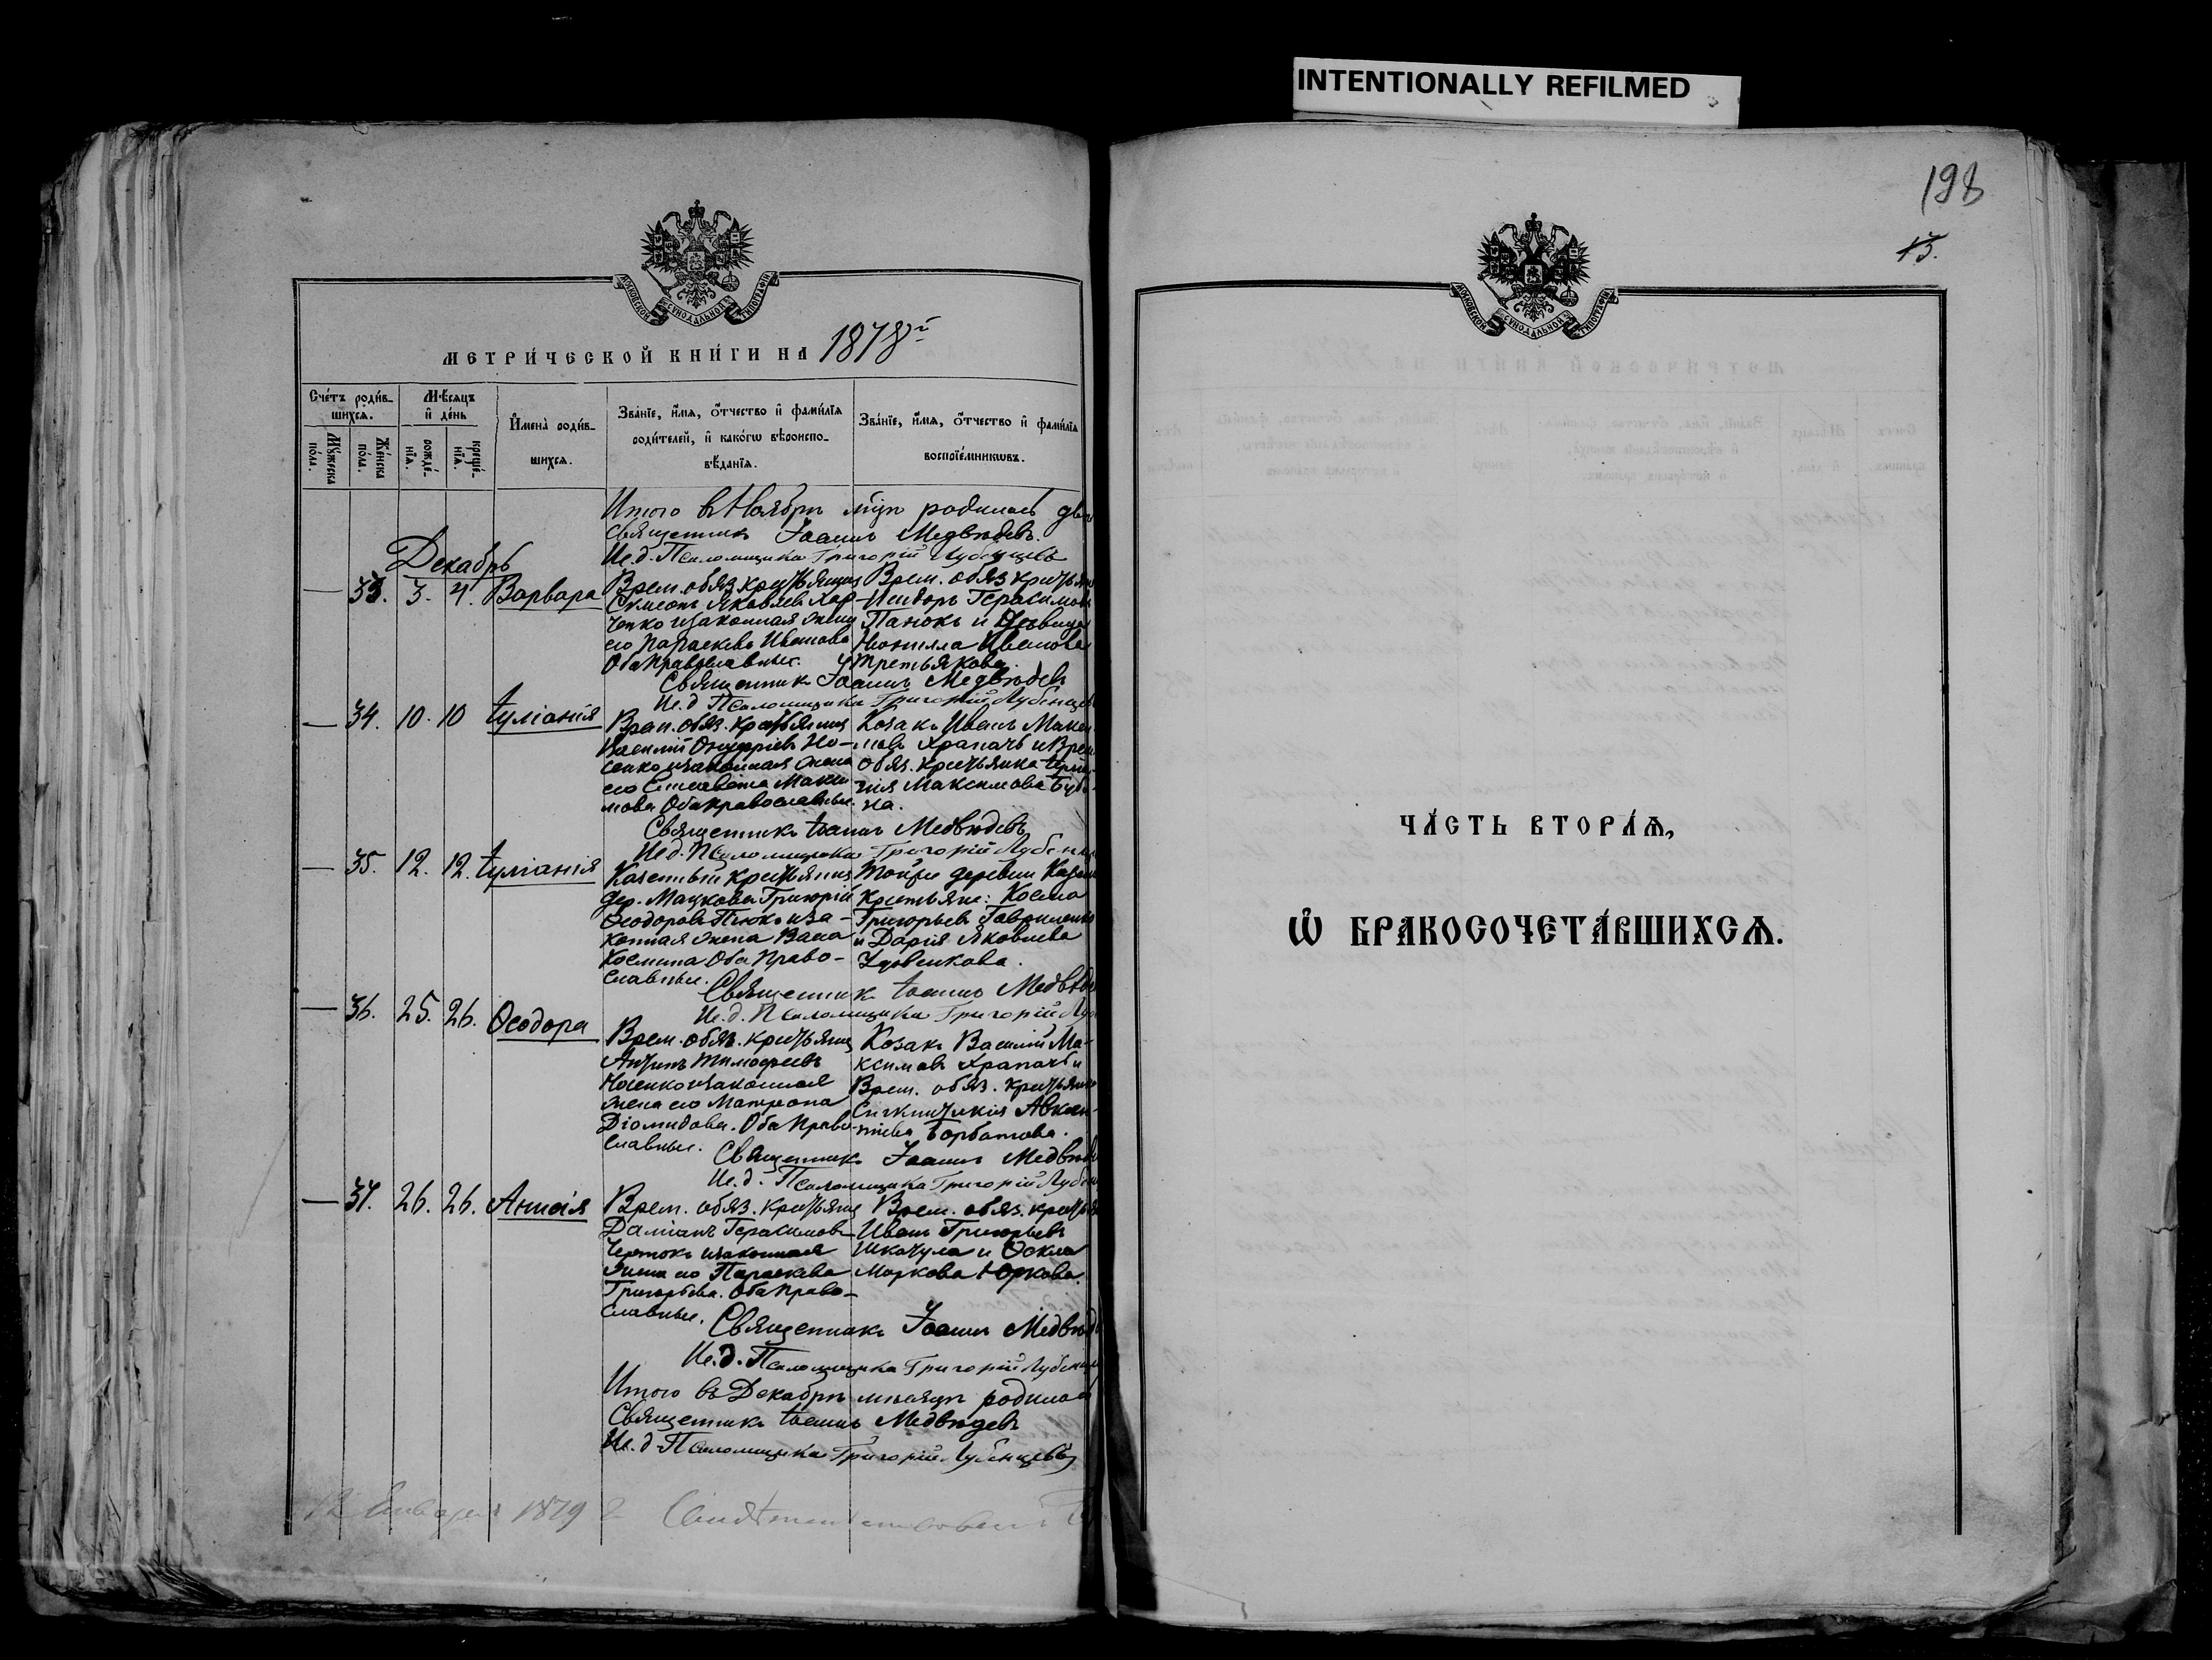 INTENTIONALLY REFILMED
198
13.
МОСКОВСКОЙ СѴНОДАЛЬНОЙ ТИПОГРАФІИ
МЕТРИ́ЧЕСКОЙ КНИ́ГИ НА 1878й
Сче́тъ роди́в-
шихсѧ.
Мѣ́сѧцъ
и҆ де́нь
И҆мена̀ роди́в-
шихсѧ.
Зва́нїе, и҆́мѧ, ѻ҆́тчество и҆ фами́лїѧ
роди́телей, и҆ како́гѡ вѣроиспо-
вѣ́данїѧ.
Зва́нїе, и҆́мѧ, ѻ҆́тчество и҆ фами́лїѧ
воспрїе́мникѡвъ.
Мꙋ́жеска
по́ла.
Же́нска
по́ла.
рожде́-
нїѧ.
креще́-
нїѧ.
Итого въ Ноябрѣ мцѣ родилось
Священникъ Іоаннъ Медвѣдевъ.
Ис.д. Псаломщика Григорій Лубенцевъ
Декабрь
— 33. 3. 4. Варвара
Врем. обяз. крестьянинъ
Сѵмеонъ Яковлевъ Хар-
ченко и законная жена
его Параскева Иванова
Оба православные.
Врем. обяз. крестьян
Исидоръ Герасимовъ
Панокъ и дѣвица
Неонилла Иванова
Третьякова.
Священникъ Іоаннъ Медвѣдевъ
Ис.д Псаломщика Григорій Лубенцев
— 34. 10. 10 Іуліанія
Врем. обяз. крестьянинъ
Василій Онуфріевъ Но-
сенко и законная жена
его Елисавета Макси
мова Оба православные.
Козакъ Иванъ Макси
мовъ Храпачъ и Врем.
обяз. крестьянка
Максимова
на.
Священникъ Іоаннъ Медвѣдевъ
Ис.д. Псаломщика Григорій Лубенц
— 35. 12. 12. Іуліанія
Казенный крестьянинъ
дер. Мацковки Григорій
Ѳеодоровъ и за-
конная жена Васса
Космина Оба право-
славные.
Той же деревни Казен
Крестьяне: Косма
Григорьевъ Гавриленко
и Дарія Яковлева
Священникъ Іоаннъ Медвѣде
Ис.д. Псаломщика Григорій Лу
— 36. 25. 26. Ѳеодора
Врем. обяз. крестьянинъ
Антипъ Тимофеевъ
Носенко и законная
жена его Матрона
Діомидова. Оба право-
славные.
Козакъ Василій Ма-
ксимовъ Храпачъ и
Врем. обяз. крестьянка
Горбатова.
Священникъ Іоаннъ Медвѣде
Ис.д. Псаломщика Григорій Лубен
— 37. 26. 26. Анисія
Врем. обяз. крестьянинъ
Даміанъ Герасимовъ
и законная
жена его Параскева
Григорьева. Оба право-
славные.
Врем. обяз. крестьян
Иванъ Григорьевъ
Шкатула и Ѳекла
Маркова Юркова.
Священникъ Іоаннъ Медвѣд
Ис.д. Псаломщика Григорій Лубенц
Итого въ Декабрѣ мѣсяцѣ родилось
Священникъ Іоаннъ Медвѣдевъ
Ис.д Псаломщика Григорій Лубенцевъ
12 Января 1879 г.
МОСКОВСКОЙ СѴНОДАЛЬНОЙ ТИПОГРАФІИ
ЧА́СТЬ ВТОРА́Ѧ,
Ѡ҆ БРАКОСОЧЕТА́ВШИХСѦ.